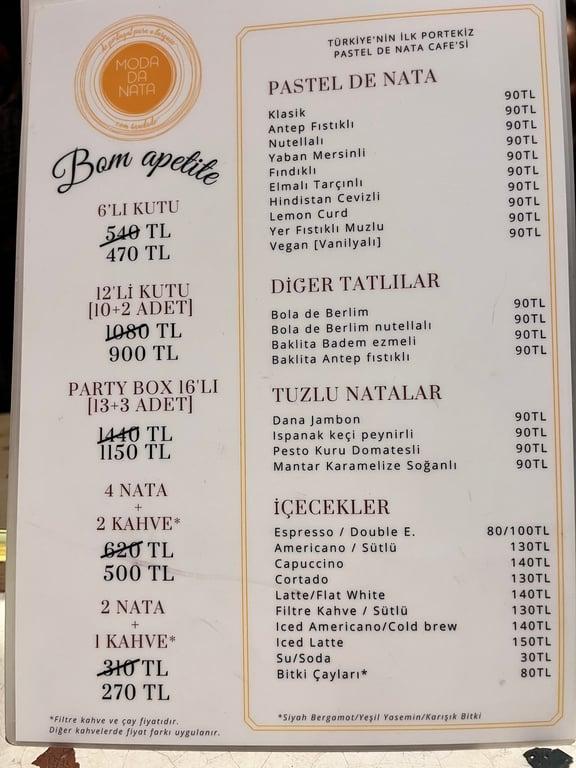 de portugal para o bósforo
MODA
DA
NATA
com saudade
Bom apetite
6'LI KUTU
540 TL
470 TL
12'Lİ KUTU
[10+2 ADET]
1080 TL
900 TL
PARTY BOX 16'LI
[13+3 ADET]
1440 TL
1150 TL
4 NATA
+
2 KAHVE*
620 TL
500 TL
2 NATA
+
1 KAHVE*
310 TL
270 TL
*Filtre kahve ve çay fiyatıdır.
Diğer kahvelerde fiyat farkı uygulanır.
TÜRKİYE'NİN İLK PORTEKİZ
PASTEL DE NATA CAFE'Sİ
PASTEL DE NATA
Klasik 90TL
Antep Fıstıklı 90TL
Nutellalı 90TL
Yaban Mersinli 90TL
Fındıklı 90TL
Elmalı Tarçınlı 90TL
Hindistan Cevizli 90TL
Lemon Curd 90TL
Yer Fıstıklı Muzlu 90TL
Vegan [Vanilyalı] 90TL
DİĞER TATLILAR
Bola de Berlim 90TL
Bola de Berlim nutellalı 90TL
Baklita Badem ezmeli 90TL
Baklita Antep fıstıklı 90TL
TUZLU NATALAR
Dana Jambon 90TL
Ispanak keçi peynirli 90TL
Pesto Kuru Domatesli 90TL
Mantar Karamelize Soğanlı 90TL
İÇECEKLER
Espresso / Double E. 80/100TL
Americano / Sütlü 130TL
Capuccino 140TL
Cortado 130TL
Latte/Flat White 140TL
Filtre Kahve / Sütlü 130TL
Iced Americano/Cold brew 140TL
Iced Latte 150TL
Su/Soda 30TL
Bitki Çayları* 80TL
*Siyah Bergamot/Yeşil Yasemin/Karışık Bitki